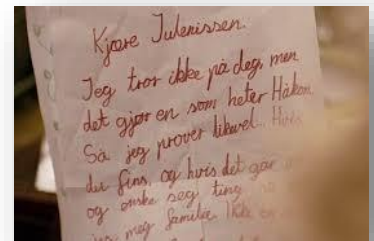 Kjære Julenissen.
Jeg tror ikke på deg, men
det gjør en som heter Håkon.
Så jeg prøver likevel. Hvis
du fins, og hvis det går
og ønske seg ting
meg familie. Ikke en